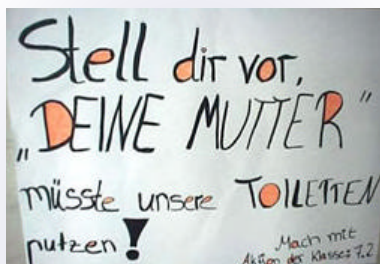 Stell dir vor,
„DEINE MUTTER"
müsste unsere TOILETTEN
putzen!
Mach mit
Aktion der Klasse: 7.2